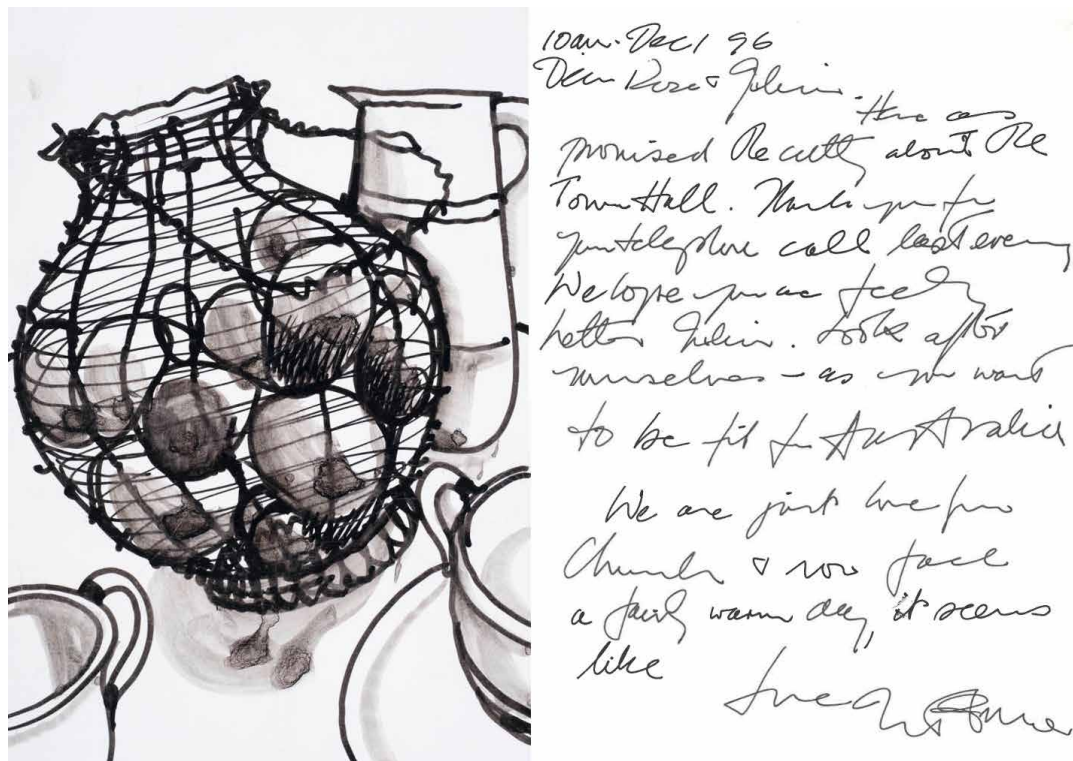 10am. Dec 1 96
Dear Rose &
Here as
promised the cutting about the
Town Hall. Thank you for
your telephone call last evening
We hope you are feeling
better. Look after
yourselves – as you want
to be fit for Australia
We are just home from
Church & now face
a fairly warm day, it seems
like